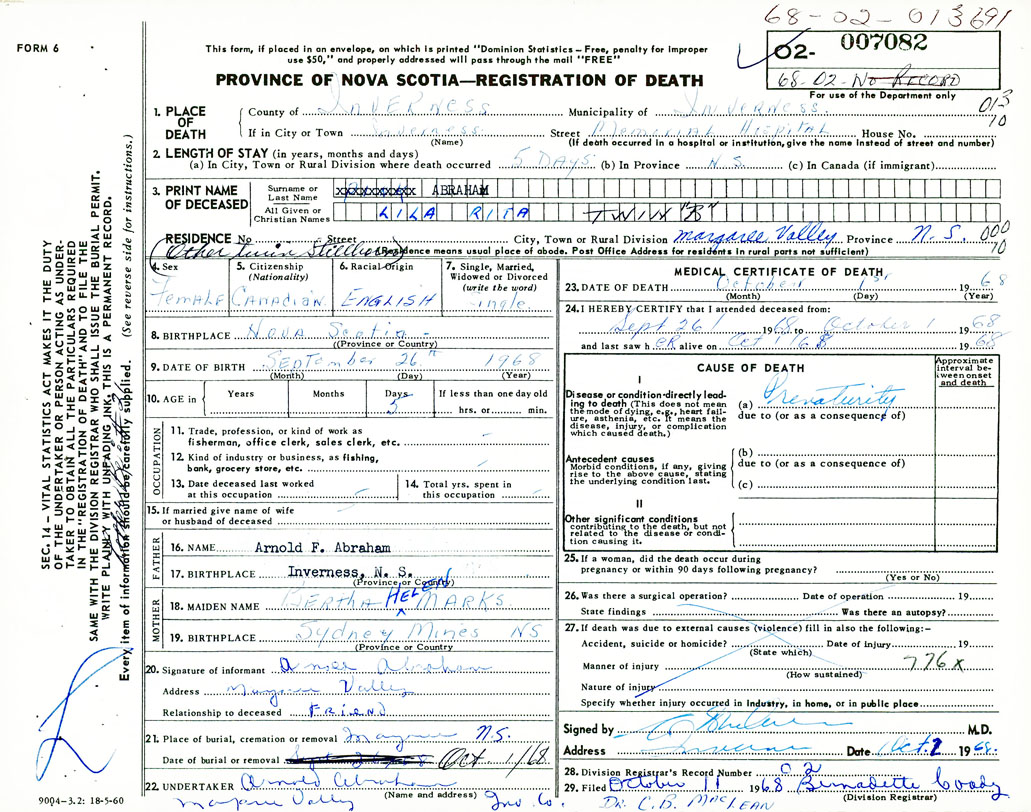 68-02-013691
FORM 6
This form, if placed in an envelope, on which is printed "Dominion Statistics – Free, penalty for improper
use $50," and properly addressed will pass through the mail "FREE"
O2- 007082
68-02-No RECORD
PROVINCE OF NOVA SCOTIA—REGISTRATION OF DEATH
For use of the Department only
013
10
1. PLACE OF DEATH
County of INVERNESS Municipality of INVERNESS
If in City or Town Inverness Street Memorial Hospital House No.
(Name) (If death occurred in a hospital or institution, give the name instead of street and number)
2. LENGTH OF STAY (in years, months and days)
(a) In City, Town or Rural Division where death occurred 5 DAYS (b) In Province N.S. (c) In Canada (if immigrant)
3. PRINT NAME OF DECEASED
Surname or Last Name ABRAHAM
All Given or Christian Names LILA RITA TWIN "B"
RESIDENCE No Street City, Town or Rural Division Margaree Valley Province N.S. 000
10
Other twin Stillborn (Residence means usual place of abode. Post Office Address for residents in rural parts not sufficient)
4. Sex Female
5. Citizenship (Nationality) Canadian
6. Racial Origin ENGLISH
7. Single, Married, Widowed or Divorced (write the word) Single
8. BIRTHPLACE Nova Scotia
(Province or Country)
9. DATE OF BIRTH September 26th 1968
(Month) (Day) (Year)
10. AGE in Years Months Days 5 If less than one day old hrs. or min.
OCCUPATION
11. Trade, profession, or kind of work as
fisherman, office clerk, sales clerk, etc.
12. Kind of industry or business, as fishing,
bank, grocery store, etc.
13. Date deceased last worked
at this occupation
14. Total yrs. spent in
this occupation
15. If married give name of wife
or husband of deceased
FATHER
16. NAME Arnold F. Abraham
17. BIRTHPLACE Inverness, N. S.
(Province or Country)
MOTHER
18. MAIDEN NAME BERTHA HELEN MARKS
19. BIRTHPLACE Sydney Mines NS
(Province or Country)
20. Signature of informant Abraham
Address Valley
Relationship to deceased FRIEND
21. Place of burial, cremation or removal N.S.
Date of burial or removal Oct 1/68
22. UNDERTAKER Arnold Abraham
(Name and address)
Margaree Valley Inv. Co.
MEDICAL CERTIFICATE OF DEATH
23. DATE OF DEATH October 1st 1968
(Month) (Day) (Year)
24. I HEREBY CERTIFY that I attended deceased from:
Sept 26/ 1968 to October 1 1968
and last saw h ER alive on Oct 1/68 1968
CAUSE OF DEATH
Approximate interval between onset and death
I
Disease or condition directly leading to death (This does not mean the mode of dying, e.g., heart failure, asthenia, etc. It means the disease, injury, or complication which caused death.)
(a) Prematurity
due to (or as a consequence of)
Antecedent causes
Morbid conditions, if any, giving rise to the above cause, stating the underlying condition last.
(b)
due to (or as a consequence of)
(c)
II
Other significant conditions
contributing to the death, but not related to the disease or condition causing it.
25. If a woman, did the death occur during
pregnancy or within 90 days following pregnancy?
(Yes or No)
26. Was there a surgical operation? Date of operation 19
State findings Was there an autopsy?
27. If death was due to external causes (violence) fill in also the following:–
Accident, suicide or homicide? Date of injury 19
(State which)
Manner of injury 776x
(How sustained)
Nature of injury
Specify whether injury occurred in Industry, in home, or in public place
Signed by M.D.
Address Inverness Date Oct. 2 1968.
28. Division Registrar's Record Number 02
29. Filed October 11 1968 Bernadette Coady
(Division Registrar)
DR. C.D. MacLEAN
SEC. 14 – VITAL STATISTICS ACT MAKES IT THE DUTY
OF THE UNDERTAKER OR PERSON ACTING AS UNDERTAKER TO OBTAIN ALL THE PARTICULARS REQUIRED
IN THE "REGISTRATION OF DEATH" AND TO FILE THE
SAME WITH THE DIVISION REGISTRAR WHO SHALL ISSUE THE BURIAL PERMIT.
WRITE PLAINLY WITH UNFADING INK, THIS IS A PERMANENT RECORD.
Every item of information should be carefully supplied. (See reverse side for instructions.)
9004-3.2: 18-5-60